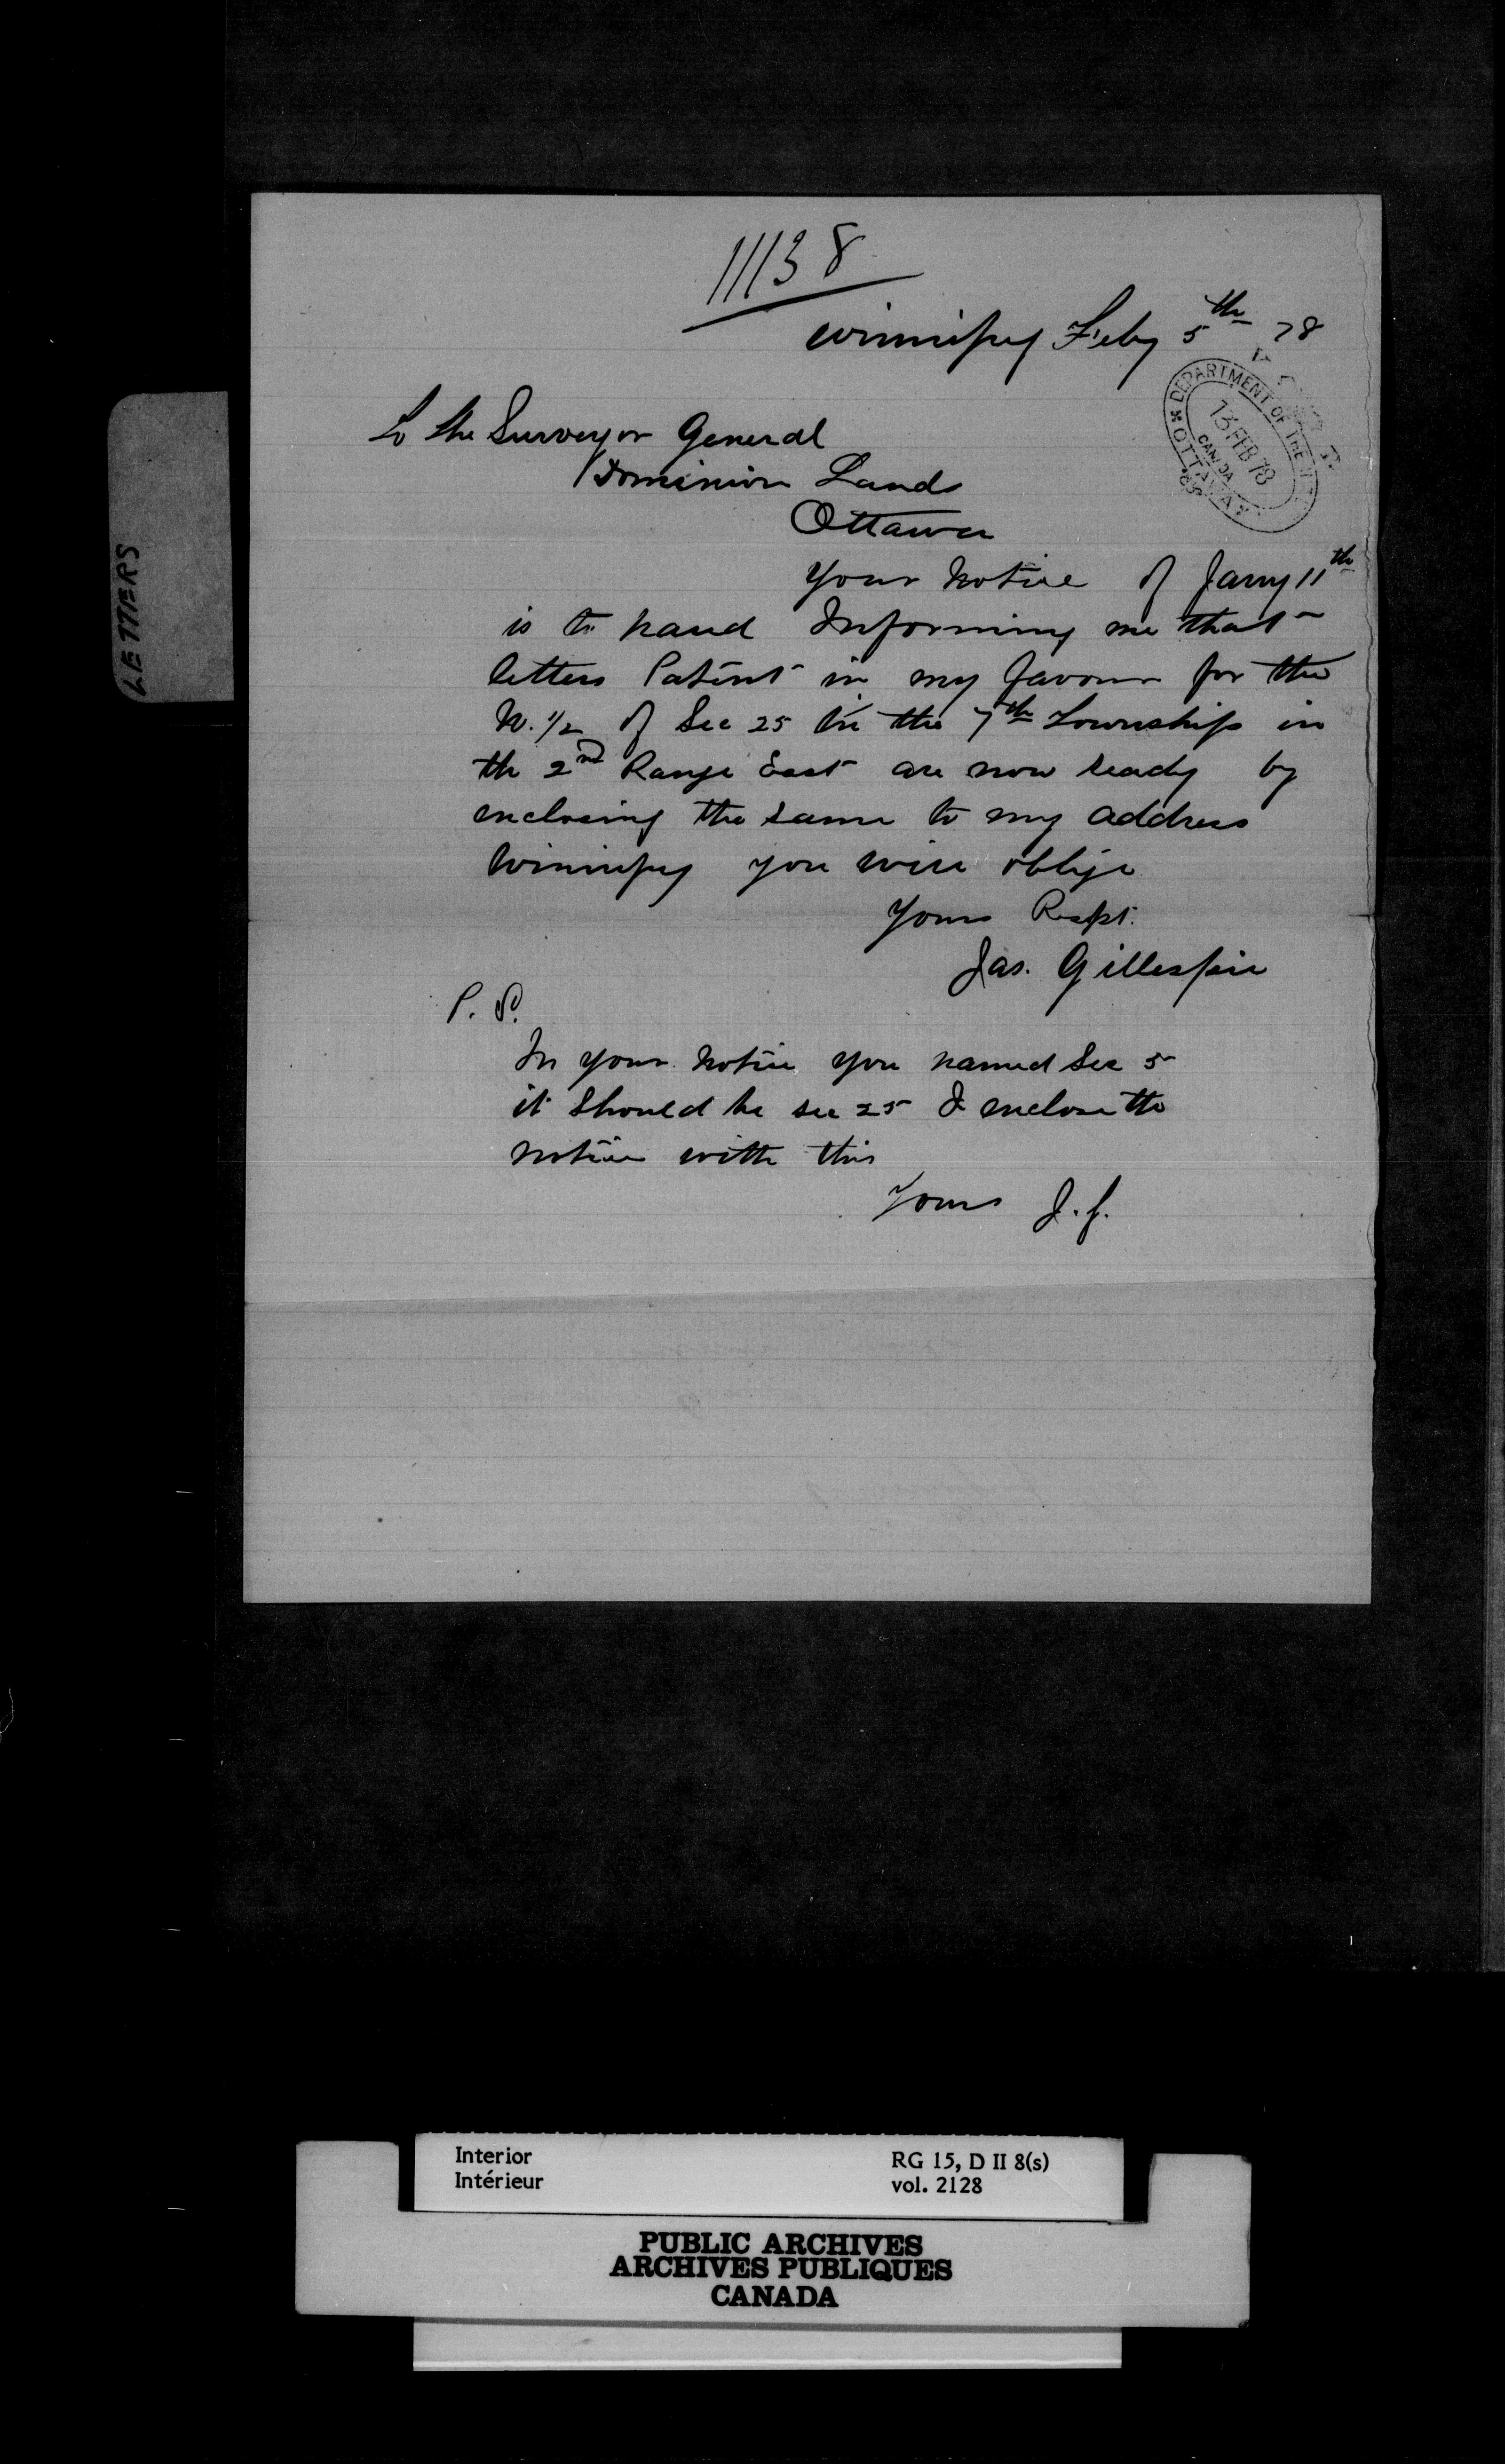 11138
Winnipeg Feby 5th 78
DEPARTMENT OF THE
13 FEB 78
CANADA
OTTAWA
To the Surveyor General
Dominion Lands
Ottawa
Your Notice of Jany 11th
is to hand Informing me that
letters Patent in my favour for the
W. 1/2 of Sec 25 in the 7th Township in
the 2nd Range East are now ready by
enclosing the same to my address
Winnipeg you will oblige
Yours Respt.
Jas. Gillespie
P. S.
In your Notice you named Sec 5
it should be sec 25 I enclose the
notice with this
Yours J. G.
LETTERS
Interior
Intérieur
RG 15, D II 8(s)
vol. 2128
PUBLIC ARCHIVES
ARCHIVES PUBLIQUES
CANADA